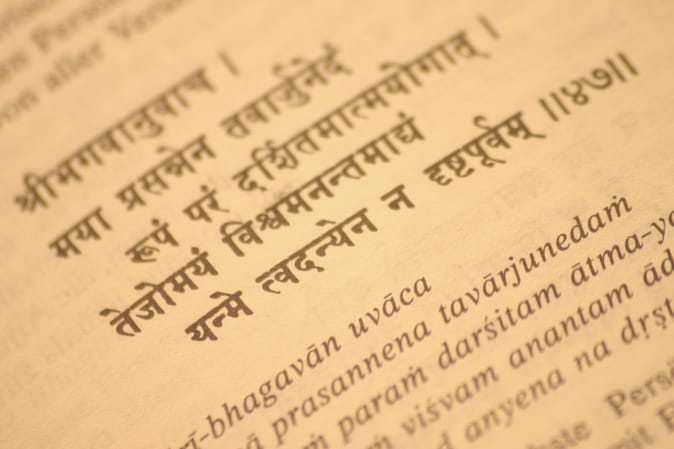 en Persön
von aller Veru
श्रीभगवानुवाच ।
मया प्रसन्नेन तवार्जुनेदं
रूपं परं दर्शितमात्मयोगात् ।
तेजोमयं विश्वमनन्तमाद्यं
यन्मे त्वदन्येन न दृष्टपूर्वम् ॥४७॥
rī-bhagavān uvāca
ā prasannena tavārjunedaṁ
ṁ paraṁ darśitam ātma-yo
ṁ viśvam anantam ād
d anyena na dṛṣṭ
ste Persö
mit